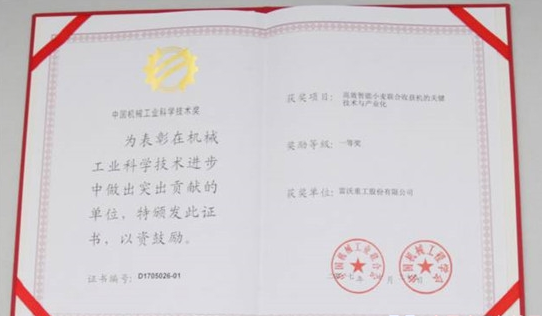 中国机械工业科学技术奖
为表彰在机械
工业科学技术进步
中做出突出贡献的
单位，特颁发此证
书，以资鼓励。
证书编号：D1705026-01
获奖项目：高效智能小麦联合收获机的关键
技术与产业化
奖励等级：一等奖
获奖单位：雷沃重工股份有限公司
中国机械工业联合会
中国机械工程学会